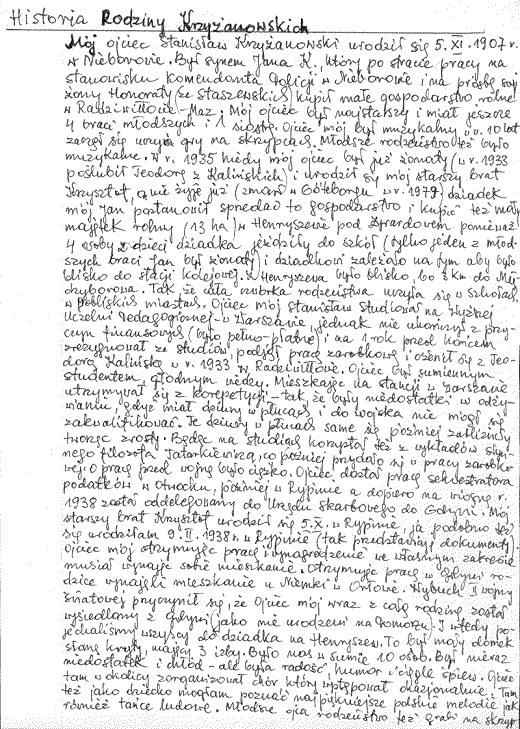 Historia Rodziny Krzyżanowskich
Mój ojciec Stanisław Krzyżanowski urodził się 5. XI. 1907 r.
w Nieborowie. Był synem Jana K., który po stracie pracy na
stanowisku komendanta Policji w Nieborowie i na prośbę swej
żony Honoraty (ze Staszewskich) kupił małe gospodarstwo rolne
w Radziwiłłowie-Maz. Mój ojciec był najstarszy i miał jeszcze
4 braci młodszych i 1 siostrę. Ojciec mój był muzykalny w 10 lat
zaczął się uczyć gry na skrzypcach. Młodsze rodzeństwo też było
muzykalne. W r. 1935 kiedy mój ojciec był już żonaty (w r. 1933
poślubił Teodorę z Kalińskich) i urodził się mój starszy brat
Krzysztof, q nie żyje już (zmarł w Göteborgu w r. 1979) dziadek
mój Jan postanowił sprzedać to gospodarstwo i kupić też mały
majątek rolny (13 ha) w Henryszewie pod Żyrardowem ponieważ
4 osoby z dzieci dziadka jeździły do szkół (tylko jeden z młod-
szych braci Jan był żonaty) i dziadkowi zależało na tym aby było
blisko do stacji kolejowej. Z Henryszewa było blisko, bo 2 km do Mię-
dzyborowa. Tak, że cała czwórka rodzeństwa uczyła się w szkołach
w pobliskich miastach. Ojciec mój Stanisław studiował na Wyższej
Uczelni Pedagogicznej w Warszawie, jednak nie ukończył z przy-
czyn finansowych (było pełno-płatne) i na 1 rok przed końcem
zrezygnował ze studiów, podjął pracę zarobkową i ożenił się z Teo-
dorą Kalińską w r. 1933 w Radziwiłłowie. Ojciec był sumiennym
studentem, głodnym wiedzy. Mieszkając na stancji w Warszawie
utrzymywał się z korepetycji - tak, że były niedostatki w odży-
wianiu, gdyż miał dziury w płucach i do wojska nie mógł się
zakwalifikować. Te dziury w płucach same się później zabliźniły
tworząc zrosty. Będąc na studiach korzystał też z wykładów słyn-
nego filozofa Tatarkiewicza, co później przydało się w pracy zarobko-
wej. O pracę przed wojną było ciężko. Ojciec dostał pracę sekwestratora
podatków w Otwocku, później w Rypinie a dopiero na wiosnę r.
1938 został oddelegowany do Urzędu Skarbowego do Gdyni. Mój
starszy brat Krzysztof urodził się 5.X. w Rypinie, ja podobno też
się urodziłam 9. II. 1938 r. w Rypinie (tak przedstawiają dokumenty)
Ojciec mój otrzymując pracę i wynagrodzenie we własnym zakresie
musiał wynająć sobie mieszkanie. Otrzymując pracę w Gdyni ro-
dzice wynajęli mieszkanie u Niemki w Orłowie. Wybuch II wojny
światowej przyczynił się, że Ojciec mój wraz z całą rodziną został
wysiedlony z Gdyni (jako nie urodzeni na Pomorzu). I wtedy po-
jechaliśmy wszyscy do dziadka na Henryszew. To był mały domek
słomą kryty, mający 3 izby. Było nas w sumie 10 osób. Był nieraz
niedostatek i chłód - ale była radość, humor i ciągle śpiew. Ojciec
tam w okolicy zorganizował chór który występował okazjonalnie. Tam
też jako dziecko mogłam poznać najpiękniejsze polskie melodie jak
również tańce ludowe. Młodsze ojca rodzeństwo też grało na skrzyp-